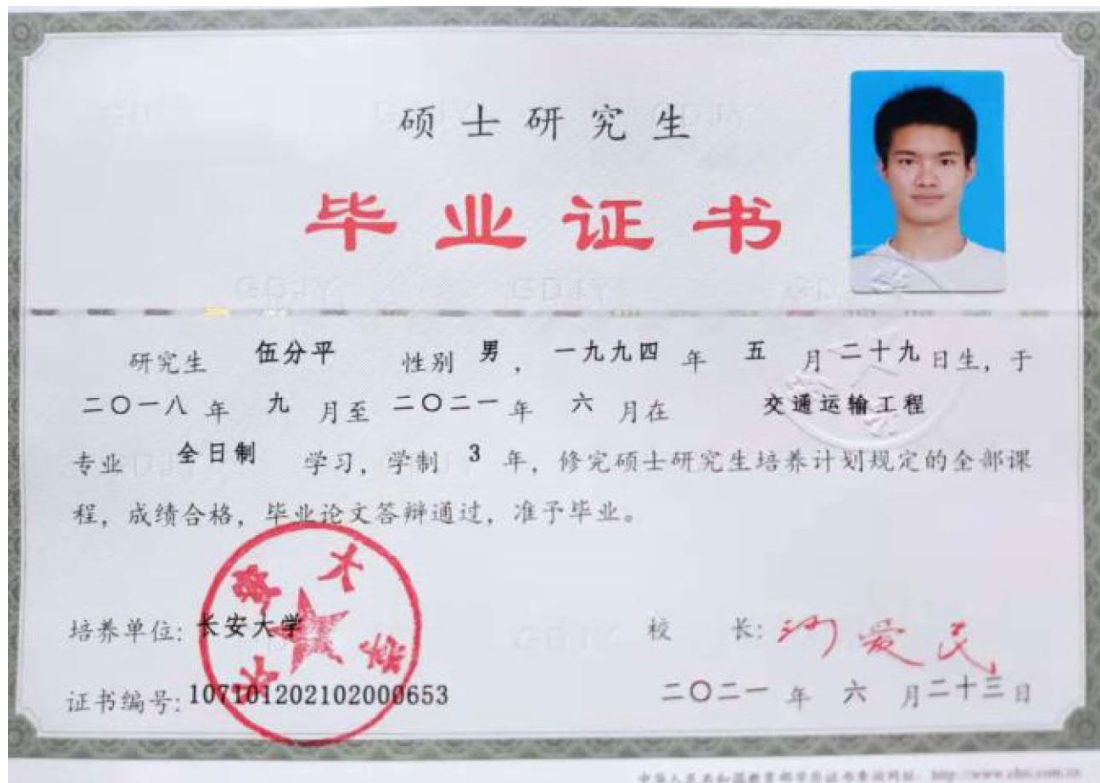 硕士研究生
毕业证书
研究生 伍分平 性别 男，一九九四 年 五 月 二十九 日生，于
二〇一八 年 九 月至 二〇二一 年 六 月在 交通运输工程
专业 全日制 学习，学制 3 年，修完硕士研究生培养计划规定的全部课
程，成绩合格，毕业论文答辩通过，准予毕业。
培养单位：长安大学
校 长：沙爱民
证书编号：107101202102000653
二〇二一 年 六 月二十三日
长安大学
中华人民共和国教育部学历证书查询网址：http://www.chsi.com.cn